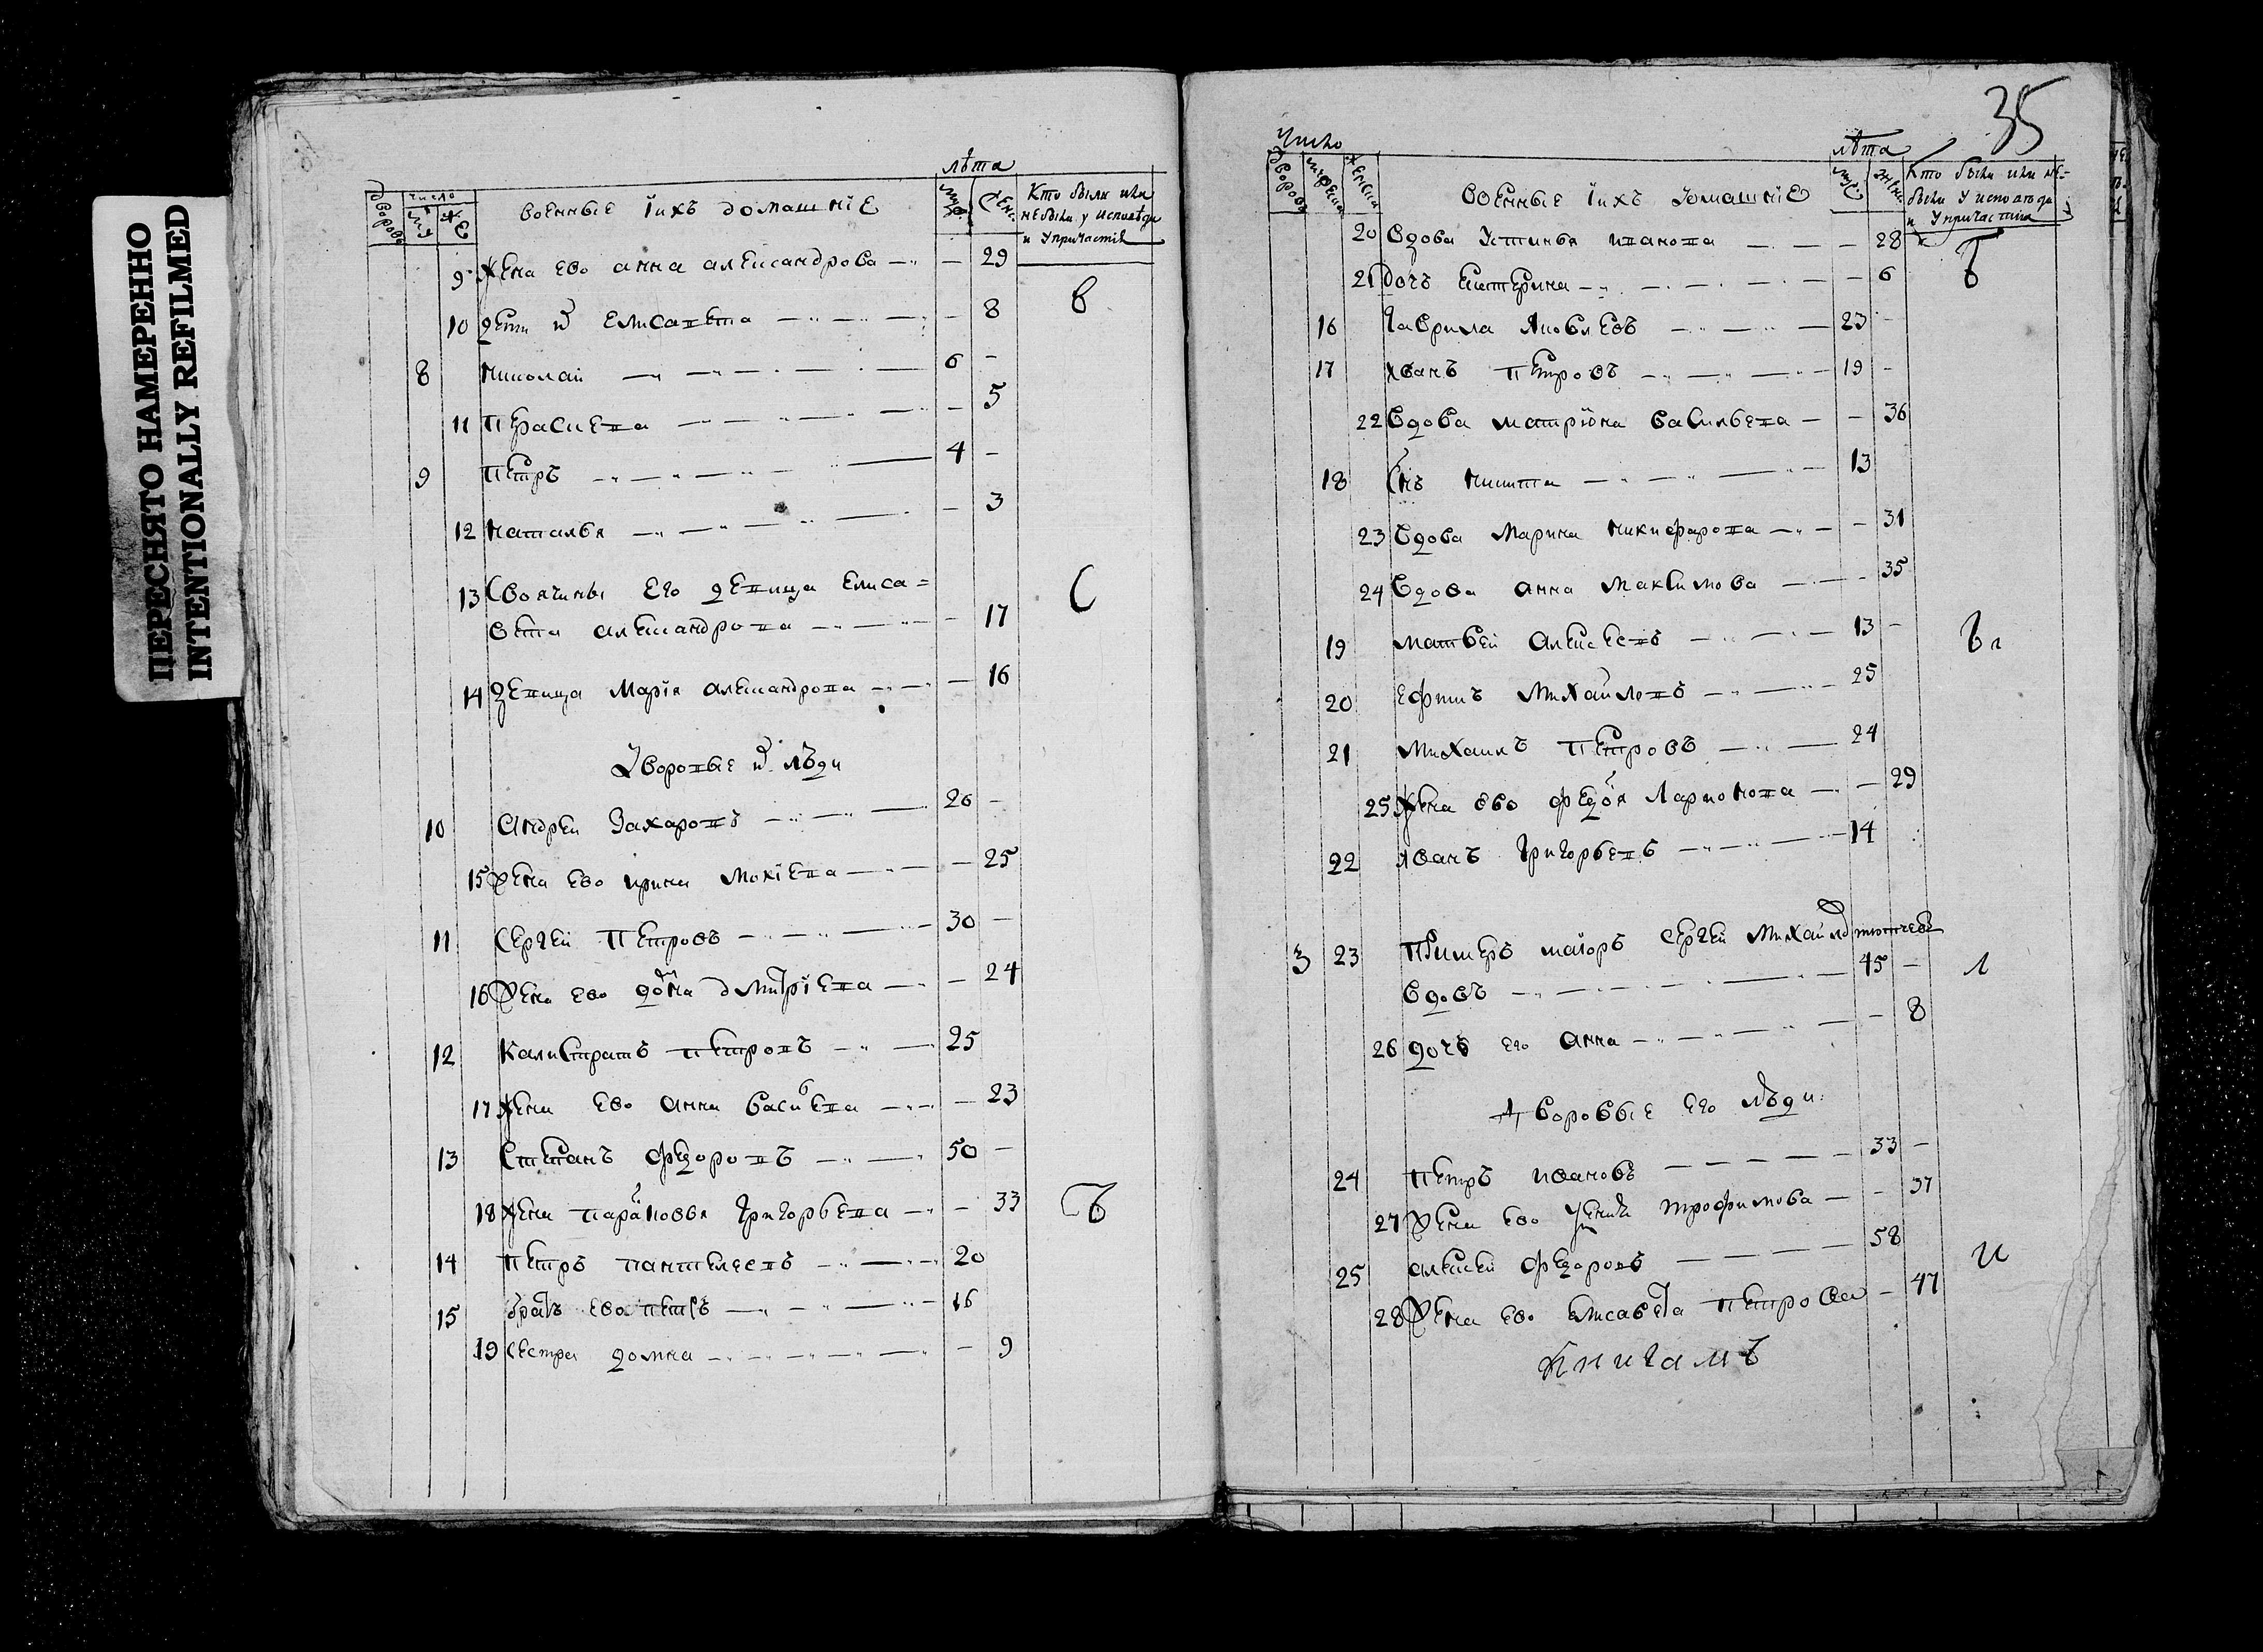 ПЕРЕСНЯТО НАМЕРЕННО
INTENTIONALLY REFILMED
лѣта
дворовъ число военные їихъ домашнїе Кто были или
не были у исповѣди
и У причастїя
9 Жена ево анна александрова — 29
10 дети их Елисавета — 8 в
8 Николай — 6 -
11 Прасковея — 5
9 Петръ — 4 -
12 Наталья — 3
13 Своячины Его девица Елиса=
вета александрова — 17 С
14 девица Марїя александрова — 16
Дворовые их люди
10 Андрей Захаровъ — 26 -
15 Жена ево ирина Мокїева — 25
11 Сергей Петровъ — 30 -
16 Жена ево домна дмитрїева — 24
12 Калистратъ петровъ — 25
17 Жена ево анна васильева — 23
13 Степанъ федоровъ — 50 -
18 Жена парасковья Григорьева — 33 Ъ
14 Петръ пантелеевъ — 20
15 братъ ево петръ — 16
19 Сестра домна — 9
35
Число лѣта
дворовъ мужеска женска военные їихъ домашнїе Кто были или не=
были У исповѣди
и У причастїя
20 Вдова Устинья иванова — 28
21 дочь Катерина — 6
16 Гаврила Яковлевъ — 23 -
17 Иванъ Петровъ — 19 -
22 Вдова матрїона васильева — 36
18 Снъ Никита — 13
23 Вдова Марина никифарова — 31
24 Вдова анна Максимова — 35
19 Матвей Алексеевъ — 13 -
20 Ефимъ Михайловъ — 25
21 Михаилъ Петровъ — 24
25 Жена ево федосья Ларионова — 29
22 Иванъ Григорьевъ — 14
3 23 Примеръ маїоръ Сергей Михайло тютчевъ
вдовъ — 45 - л
26 дочь его Анна — 8
Дворовые его люди
24 Петръ ивановъ — 33 -
27 Жена ево трофимова — 37
25 алексей федоровъ — 58 и
28 Жена ево елисавета петрова — 47
книгамъ